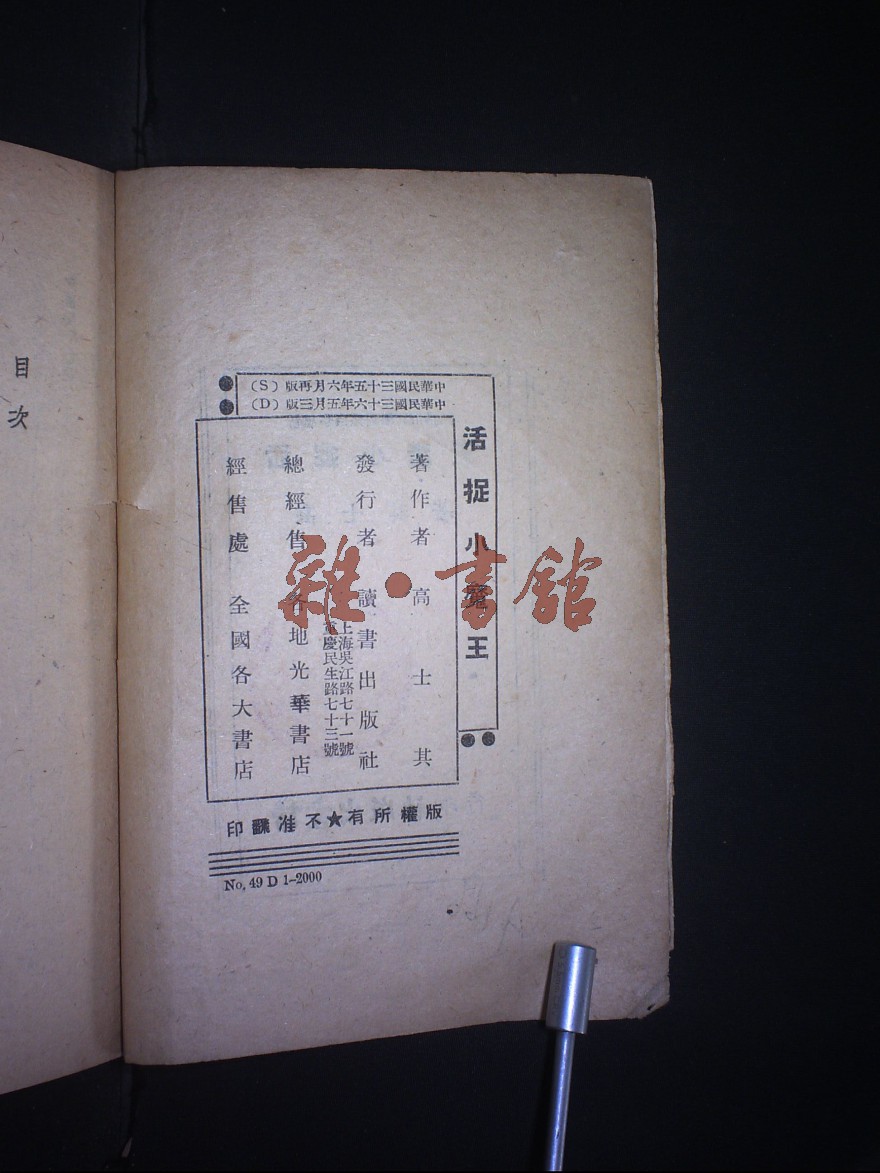 活捉小魔王
中華民國三十五年六月再版(S)
中華民國三十六年五月三版(D)
著作者 高士其
發行者 讀書出版社
上海吳江路七十一號
重慶民生路七十三號
總經售 各地光華書店
經售處 全國各大書店
版權所有★不准翻印
No. 49 D 1-2000
目次
雜·書館